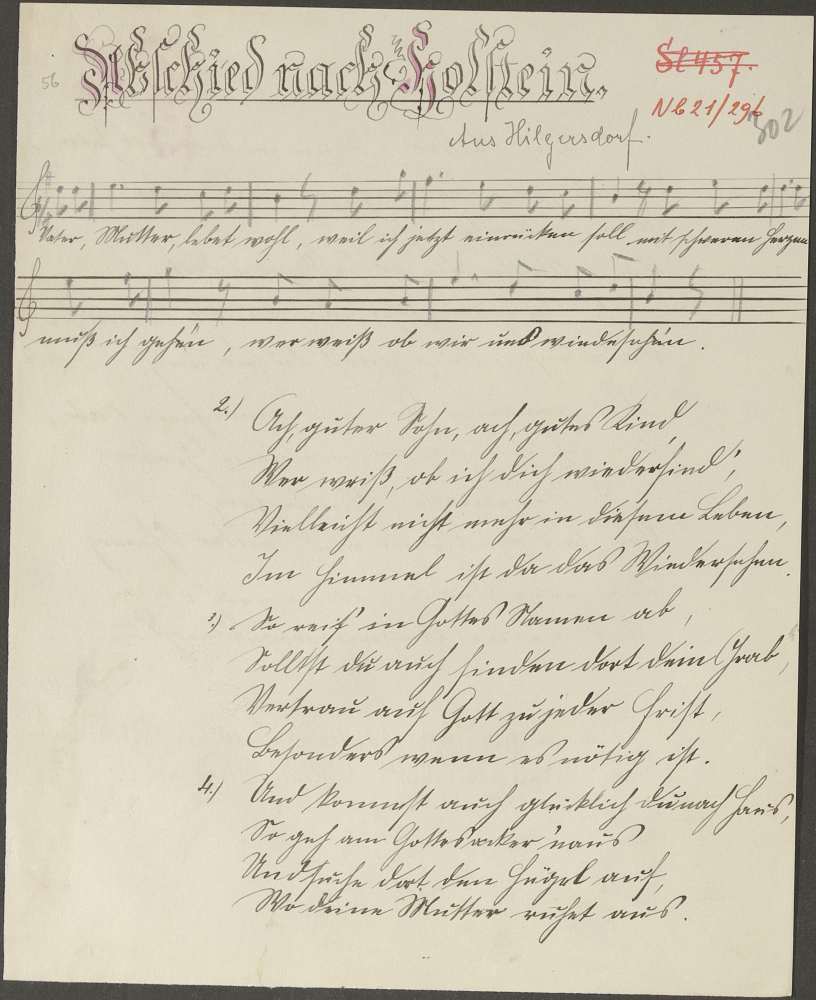 56
Abschied nach Holstein.
Sl 457.
Nb 21/296
302
Aus Hilgersdorf.
Vater, Mutter, lebet wohl, weil ich jetzt einrücken soll mit schweren Herzen
muß ich gehen, wer weiß ob wir uns wiedesehen.
2.) Ach, guter Sohn, ach, gutes Kind,
Wer weiß, ob ich dich wiederfind',
Vielleicht nicht mehr in diesem Leben,
Im Himmel ist da das Wiedersehen.
3.) So reis' in Gottes Namen ab,
Sollst du auch finden dort dein Grab,
Vertrau auf Gott zu jeder Frist,
Besonders wenn es nötig ist.
4.) Und kommst auch glücklich du nach Haus,
So geh am Gottesacker 'naus
Und suche dort den Hügel auf,
Wo deine Mutter ruhet aus.